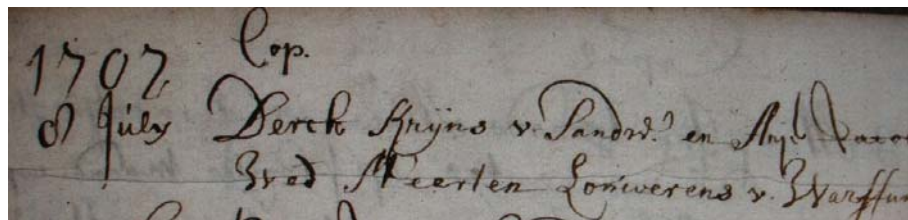 1707 Cop.
8 July Derck Krijns v. Sandrd. en
Wed Meerten Louwerens v. Warffum